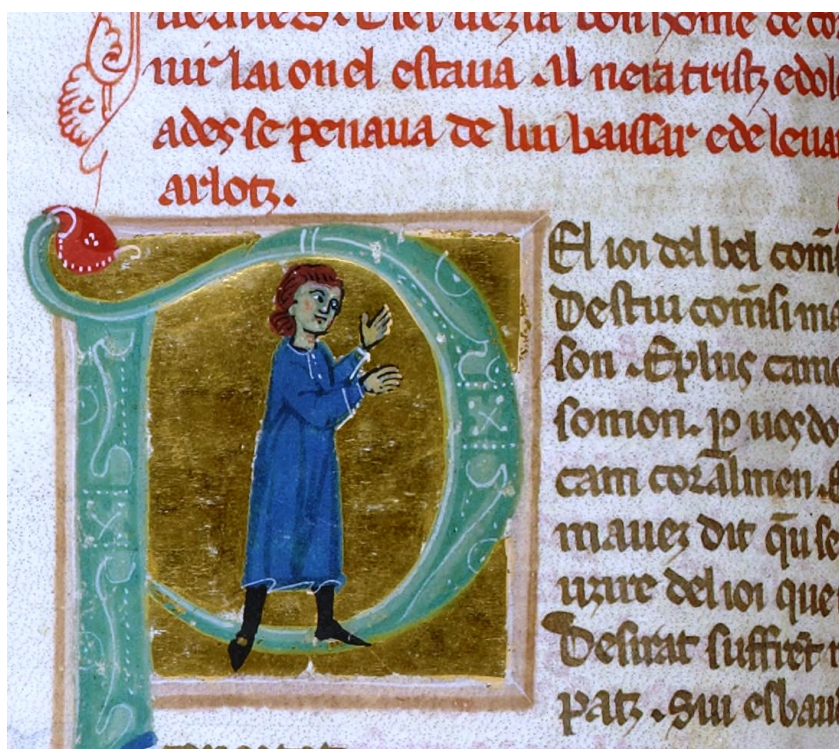 uezia bon home de co
nir lai on el estaua .Al nera tristz e dol
ades se penaua de lui baissar e de leua
arlotz.
El ioi del bel com̄
Destiu com̄si m
son . E plus cam
somon. p uos do
cam corālmen.
mauez dit q̄u se
uzire del ioi que
Desirat suffrēt
patz . Sui esbau